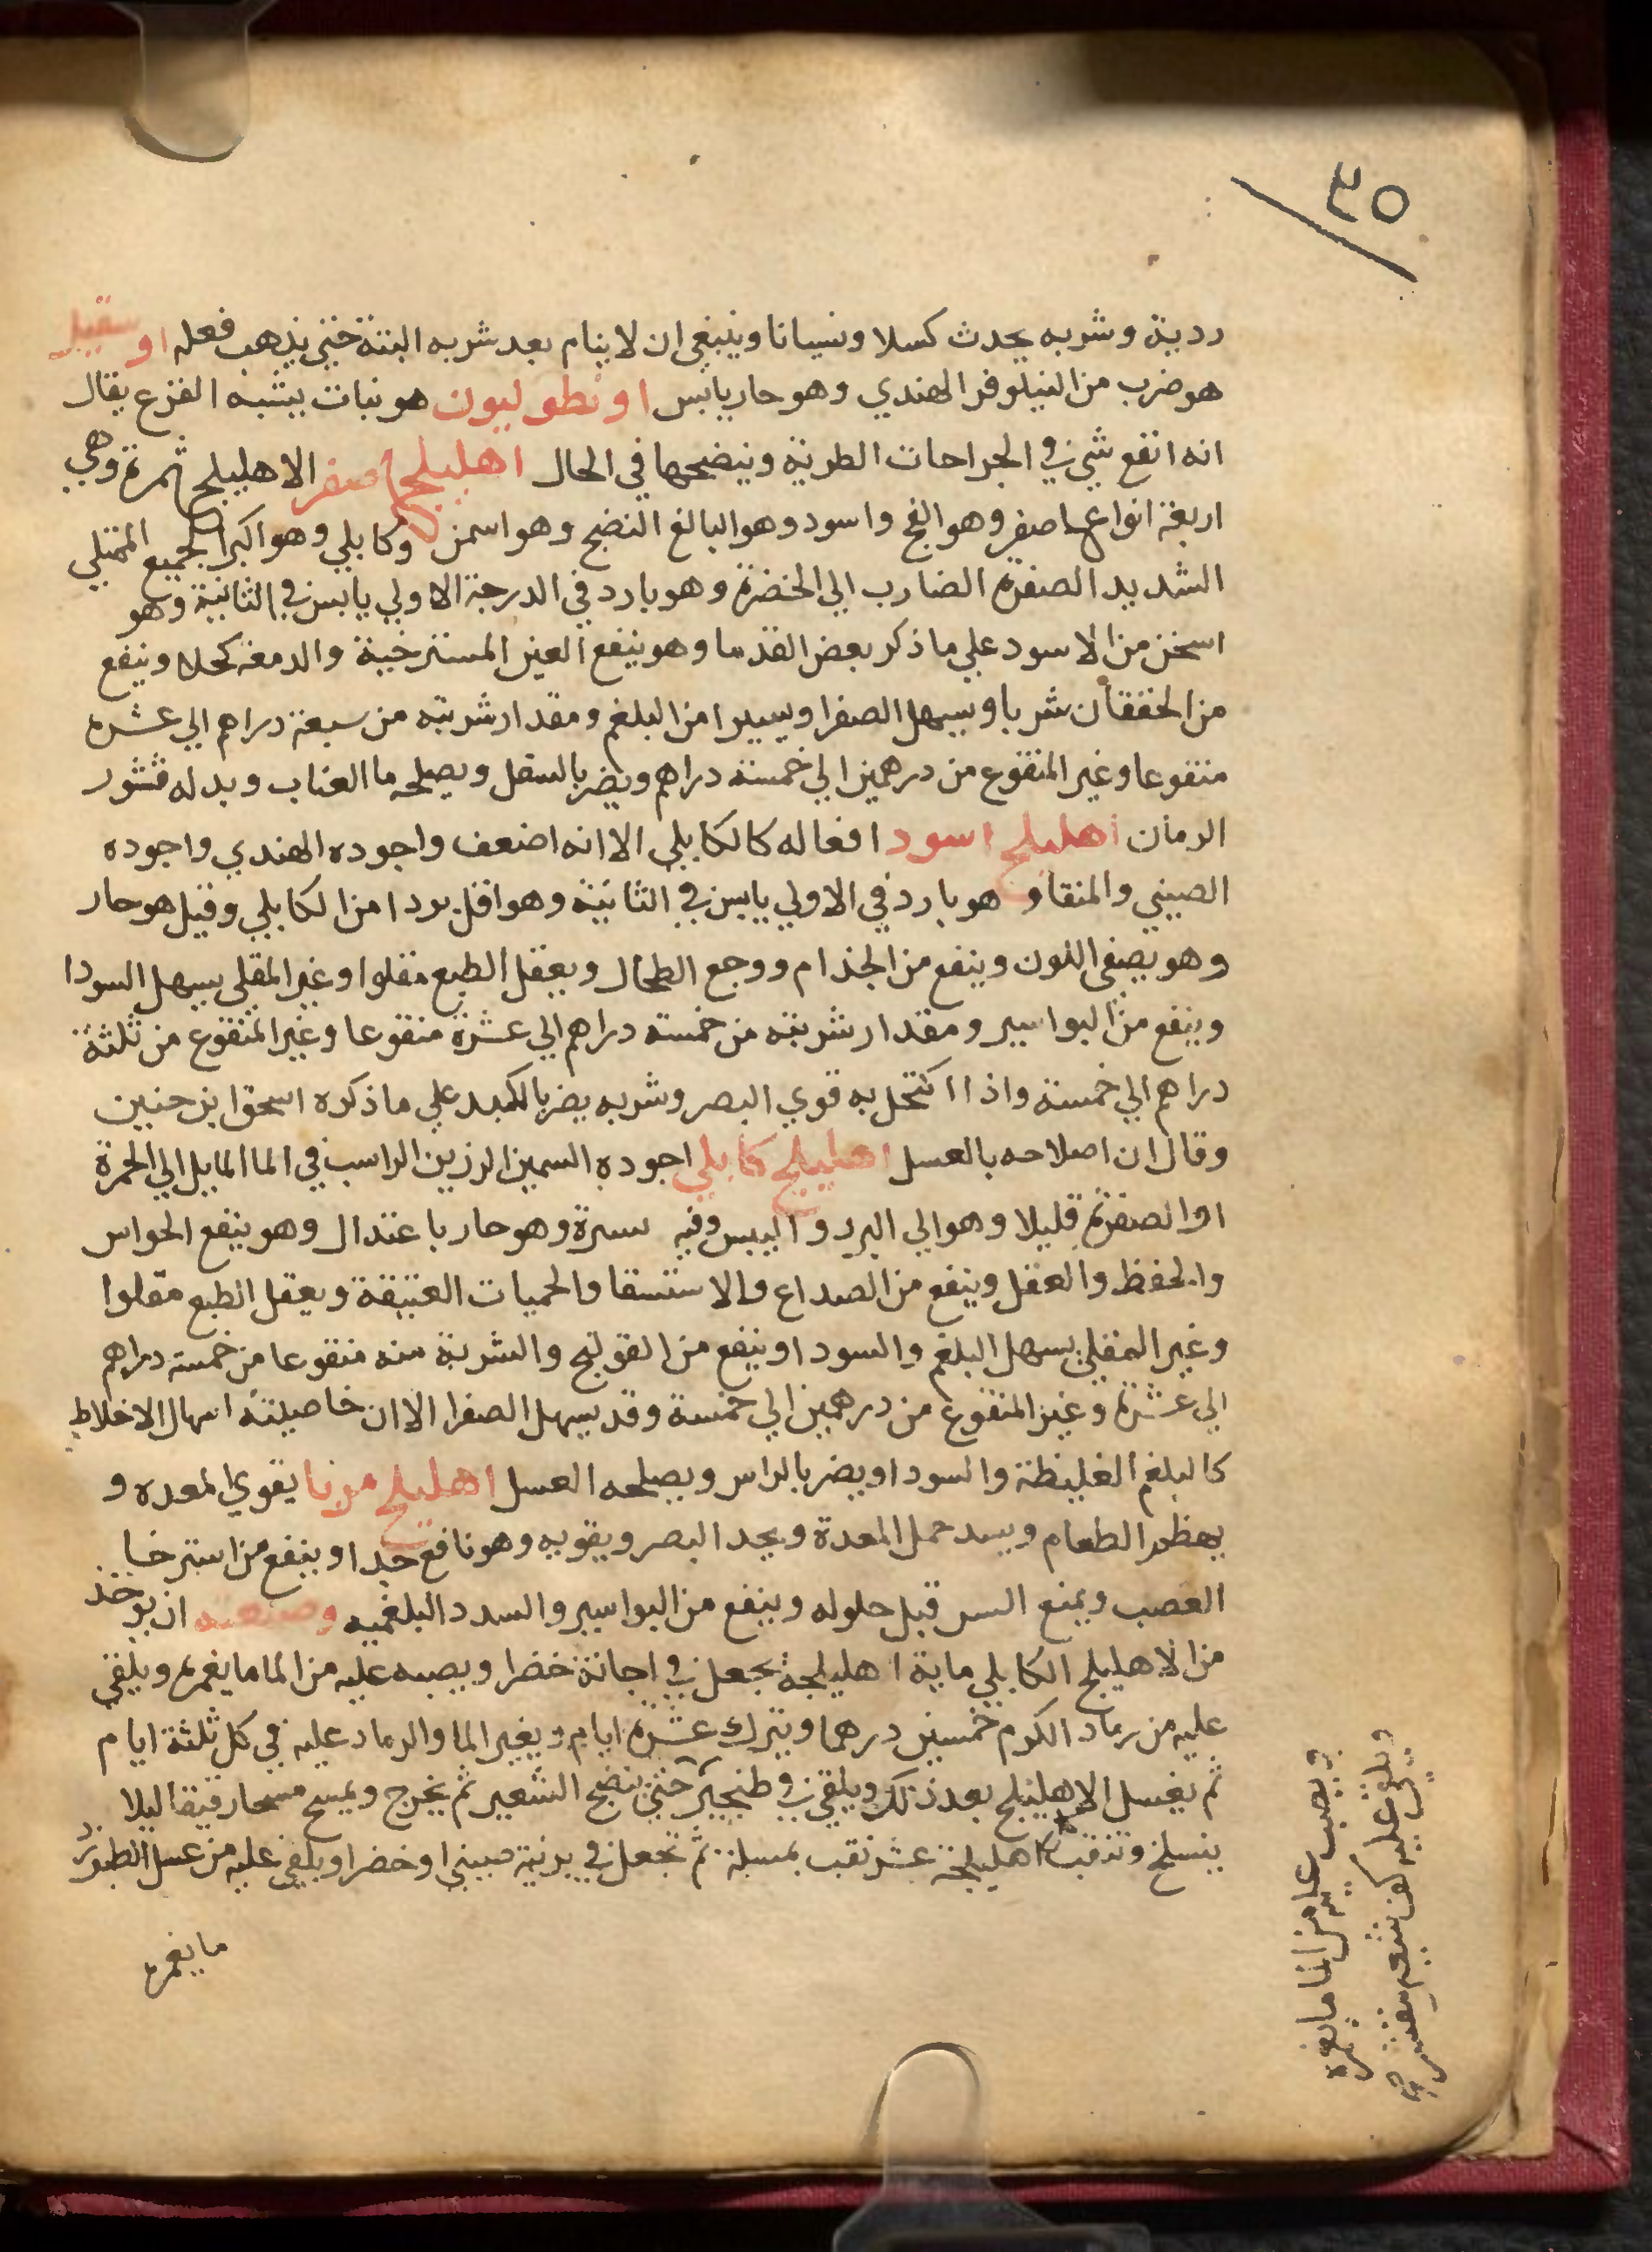 ٣٥
ردية وشربه يحدث كسلا ونسيانا وينبغي ان لا ينام بعد شربه البتة حتي يذهب فعله او
هو ضرب من النيلوفر الهندي وهو حار يابس اونطوليون هو نبات يشبه القرع يقال
انه انفع شي في الجراحات الطرية وينضجها في الحال اهليلج اصفر الاهليلج ثمرة وهي
اربعة انواع اصفر وهو الفج واسود وهو البالغ النضج وهو اسمن وكابلي وهو اكبر الجميع الممتلي
الشديد الصفرة الضارب الي الخضرة وهو بارد في الدرجة الاولي يابس في الثانية وهو
اسخن من الاسود علي ما ذكر بعض القدما وهو ينفع العين المسترخية والدمعة كحلا وينفع
من الخفقان شربا ويسهل الصفرا ويسيرا من البلغم ومقدار شربته من سبعة دراهم الي عشرة
منقوعا وغير المنقوع من درهمين الي خمسة دراهم ويضر بالسفل ويصلحه ما العناب وبدله قشور
الرمان اهليلج اسود افعاله كالكابلي الا انه اضعف واجوده الهندي واجوده
الصيني والمنقا و هو بارد في الاولي يابس في الثانية وهو اقل بردا من الكابلي وقيل هو حار
وهو يصفي اللون وينفع من الجذام ووجع الطحال ويعقل الطبع مقلوا وغير المقلي يسهل السودا
وينفع من البواسير ومقدار شربته من خمسة دراهم الي عشرة منقوعا وغير المنقوع من ثلثة
دراهم الي خمسة واذا اكتحل به قوي البصر وشربه يضر بالكبد علي ما ذكره اسحق ابن حنين
وقال ان اصلاحه بالعسل اهليلج كابلي اجوده السمين الرزين الراسب في الما المايل الي الحمرة
او الصفرة قليلا وهو الي البرد واليبس وفيه سرة وهو حار باعتدال وهو ينفع الحواس
والحفظ والعقل وينفع من الصداع والاستسقا والحميات العتيقة ويعقل الطبع مقلوا
وغير المقلي يسهل البلغم والسودا وينفع من القولنج والشربة منه منقوعا من خمسة دراهم
الي عشرة وغير المنقوع من درهمين الي خمسة وقد يسهل الصفرا الا ان خاصيته اسهال الاخلاط
كالبلغم الغليظة والسودا ويضر بالراس ويصلحه العسل اهليلج مربا يقوي المعدة و
يهظم الطعام ويسد حمل المعدة ويحد البصر ويقويه وهو نافع جدا وينفع من استرخا
العصب ويمنع السر قبل حلوله وينفع من البواسير والسدد البلغميه وصنعته ان يوخذ
من الاهليلج الكابلي ماية اهليلجة يجعل في اجانة خضرا ويصبه عليه من الما ما يغمره ويلقي
عليه من رماد الكرم خمسين درهما ويترك عشرة ايام ويغير الما والرماد عليه في كل ثلثة ايام
ثم يغسل الاهليلج بعد ذلك ويلقي في طنجير حتي ينضج الشعير ثم يخرج ويمسح مسحا رقيقا ليلا
ينسلخ وتثقب كل اهليلجة عشر ثقب بمسلة ثم تجعل في برنية صيني او خضرا ويلقي عليه من عسل الطبرزد
ما يغمره
ويصب عليه من الما ما يغمره
ويلقي عليه كف شعير مقشر